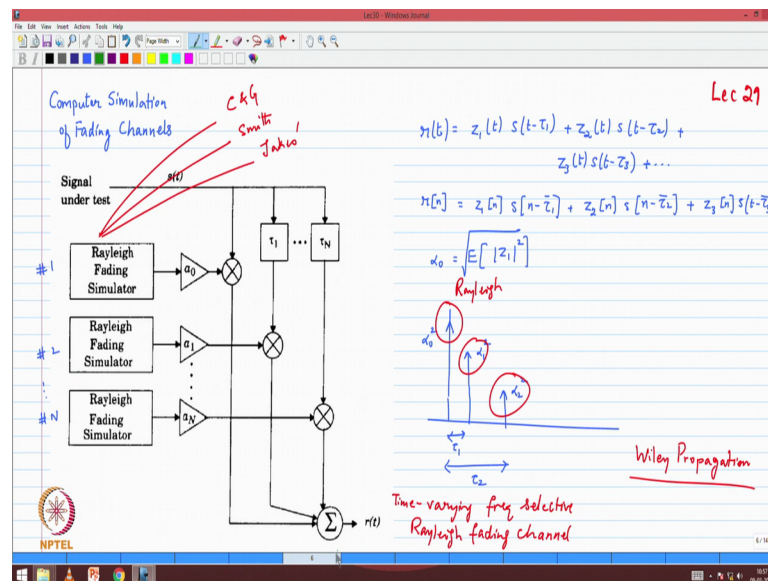 Lec30 - Windows Journal
File Edit View Insert Actions Tools Help
Page Width
B I
Lec 29
Computer Simulation
of Fading Channels
C & G
Smith
Jakes'
Signal
under test
s(t)
τ1 ... τN
#1
Rayleigh
Fading
Simulator
a0
#2
Rayleigh
Fading
Simulator
a1
#N
Rayleigh
Fading
Simulator
aN
Σ
r(t)
r(t) = z1(t) s(t-τ1) + z2(t) s(t-τ2) +
z3(t) s(t-τ3) + ...
r[n] = z1[n] s[n-τ̄1] + z2[n] s[n-τ̄2] + z3[n] s(t-τ̄
α0 = √E[|z1|²]
Rayleigh
α0² α1² α2²
τ1
τ2
Wiley Propagation
Time-varying freq selective
Rayleigh fading channel
NPTEL
6
6/14
10:57